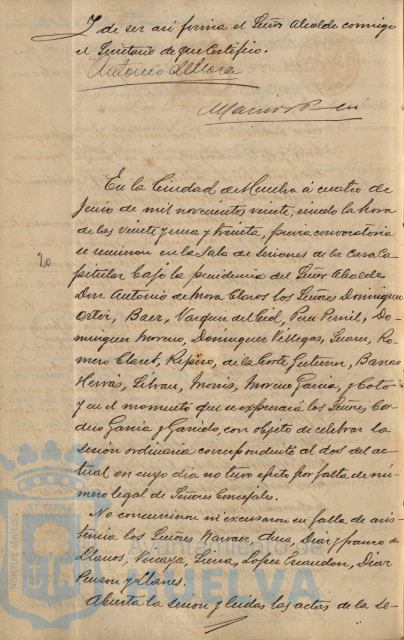 Y de ser así firma el Señor Alcalde conmigo
el Secretario de que certifico.
Antonio de Mora
En la Ciudad de Huelva á cuatro de
Junio de mil novecientos veinte, siendo la hora
de las veinte y una y treinta, previa convocatoria
se reunieron en la Sala de Sesiones de la casa Ca-
20
pitular bajo la presidencia del Señor Alcalde
Don Antonio de Mora Claros los Señores Dominguez
Ortiz, Baez, Vazquez del Cid, Perez Pernil, Do-
minguez Moreno, Dominguez Villegas, Suarez, Ro-
mero Claret, Répiso, de la Corte Gutierrez, Barras
Hervás, Silvan, Monis, Moreno Garcia, y Coto
y en el momento que se expresará los Señores Cor-
dero Garcia y Garrido, con objeto de celebrar la
sesion ordinaria correspondiente al dos del ac-
tual en cuyo dia no tuvo efecto por falta de nú-
mero legal de Señores Concejales.
No concurrieron ni excusaron su falta de asis-
tencia los Señores Narvaez, Chea, Diaz y Franco de
Llanos, Vizcaya, Sierra, Lopez Escandon, Diaz
Pinzon y Llanes.
Abierta la sesion y leidas las actas de la se-
PORTUS MARIS ET TERRAE
Ayuntamiento de
HUELVA